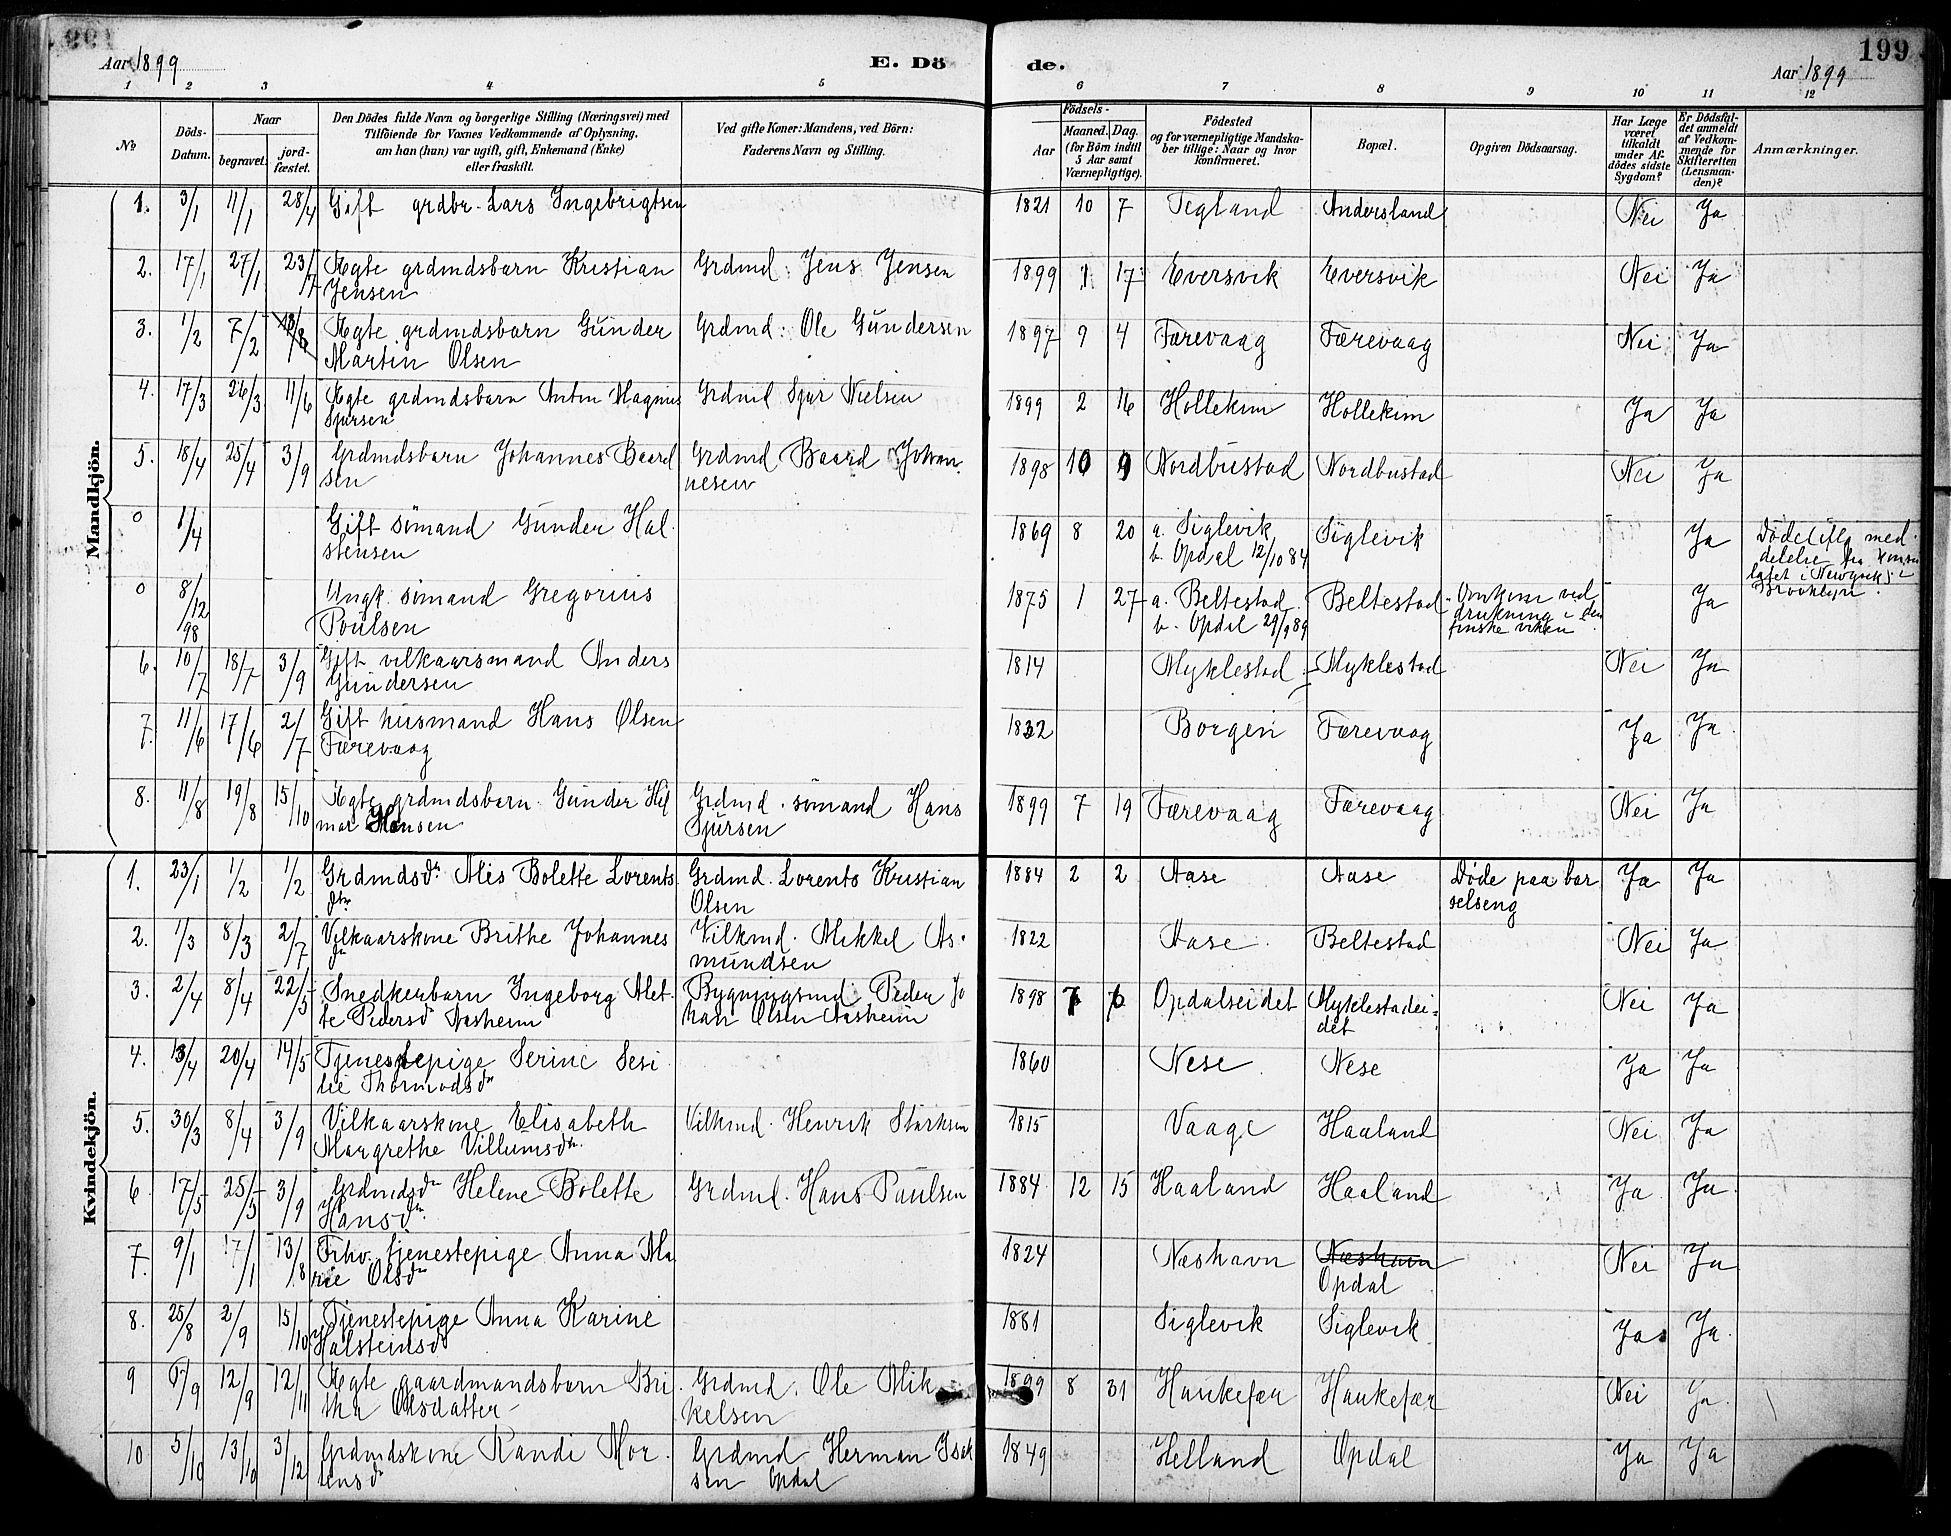 Aar 1899
E. Dö
de.
199
Aar 1899
1 2 3 4 5 6 7 8 9 10 11 12
No
Döds-
Datum.
Naar
begravet.
jord-
fæstet.
Den Dödes fulde Navn og borgerlige Stilling (Næringsvei) med
Tilföiende for Voxnes Vedkommende af Oplysning,
om han (hun) var ugift, gift, Enkemand (Enke)
eller fraskilt.
Ved gifte Koner: Mandens, ved Börn:
Faderens Navn og Stilling.
Födsels-
Aar
Maaned. Dag.
(for Börn indtil
5 Aar samt
Værnepligtige).
Födested
og for værnepligtige Mandska-
ber tillige: Naar og hvor
konfirmeret.
Bopæl.
Opgiven Dödsaarsag.
Har Læge
været
tilkaldt
under Af-
dödes sidste
Sygdom?
Er Dödsfal-
det anmeldt
af Vedkom-
mende for
Skifteretten
(Lensman-
den)?
Anmærkninger.
Mandkjön.
1. 3/1 11/1 28/4 Gift grdbr. Lars Ingebrigtsen 1821 10 7 Tegland Andersland Nei Ja
2. 17/1 27/1 23/7 Ægte grdmdsbarn Kristian Grdmd: Jens Jensen 1899 1 17 Eversvik Eversvik Nei Ja
Jensen
3. 1/2 7/2 Ægte grdmdsbarn Gunder Grdmd: Ole Gundersen 1897 9 4 Færevaag Færevaag Nei Ja
Martin Olsen
4. 17/3 26/3 11/6 Ægte grdmdsbarn Anton Magnus Grdmd Sjur Nielsen 1899 2 16 Hollekim Hollekim Ja Ja
Sjursen
5. 18/4 25/4 3/9 Grdmdsbarn Johannes Baard Grdmd Baard Johan 1898 10 9 Nordbustad Nordbustad Nei Ja
sen nesen
0 1/4 Gift sømand Gunder Hal 1869 8 20 a. Siglevik Siglevik Ja Døde iflg med
stensen b. Opdal 12/10 84 delelse fra konsu
latet i Newyork i
Brooklyn.
0 8/12 98 Ungk. sømand Gregorius 1875 1 27 a. Beltestad Beltestad Omkom ved Ja
Poulsen b. Opdal 29/9 89 drukning i den
finske viken
6. 10/7 18/7 3/9 Gift vilkaarsmand Anders 1814 Myklestad Myklestad Nei Ja
Gundersen
7. 11/6 17/6 2/7 Gift husmand Hans Olsen 1832 Borgen Færevaag Ja Ja
Færevaag
8. 11/8 19/8 15/10 Ægte grdmdsbarn Gunder Hil Grdmd. sømand Hans 1899 7 19 Færevaag Færevaag Nei Ja
mar Hansen Sjursen
Kvindekjön.
1. 23/1 1/2 1/2 Grdmdsdr Alis Bolette Lorents Grdmd. Lorents Kristian 1884 2 2 Aase Aase Døde paa bar Ja Ja
dtr Olsen selseng
2. 1/3 8/3 2/7 Vilkaarskone Brithe Johannes Vilkmd. Mikkel As- 1822 Aase Beltestad Nei Ja
dr mundsen
3. 2/4 8/4 22/5 Snedkerbarn Ingeborg Alet Bygningsmd Peder Jo 1898 7 6 Opdalseidet Myklestadei= Nei Ja
te Pedersdr Aasheim han Olsen Aasheim det
4. 13/4 20/4 14/5 Tjenestepige Serine Sesi 1860 Nese Nese Ja Ja
lie Thormodsdr
5. 30/3 8/4 3/9 Vilkaarskone Elisabeth Vilkmd. Henrik 1815 Vaage Haaland Nei Ja
Margrethe Villumsdtr
6 17/5 25/5 3/9 Grdmdsdr Helene Bolette Grdmd. Hans Paulsen 1884 12 15 Haaland Haaland Ja Ja
Hansdr
7. 9/1 17/1 13/8 Frhv. tjenestepige Anna Ma 1824 Neshavn Næshavn Nei Ja
rie Olsdr Opdal
8. 25/8 2/9 15/10 Tjenestepige Anna Karine 1881 Siglevik Siglevik Ja Ja
Halsteinsdr
9 6/9 12/9 12/11 Ægte gaardmandsbarn Bri Grdmd. Ole Mik 1899 8 31 Haukefær Haukefær Nei Ja
tha Olsdatter kelsen
10 5/10 13/10 3/12 Grdmdskone Randi Mor Grdmd Herman Isak 1849 Helland Opdal Ja Ja
tensdr sen Opdal